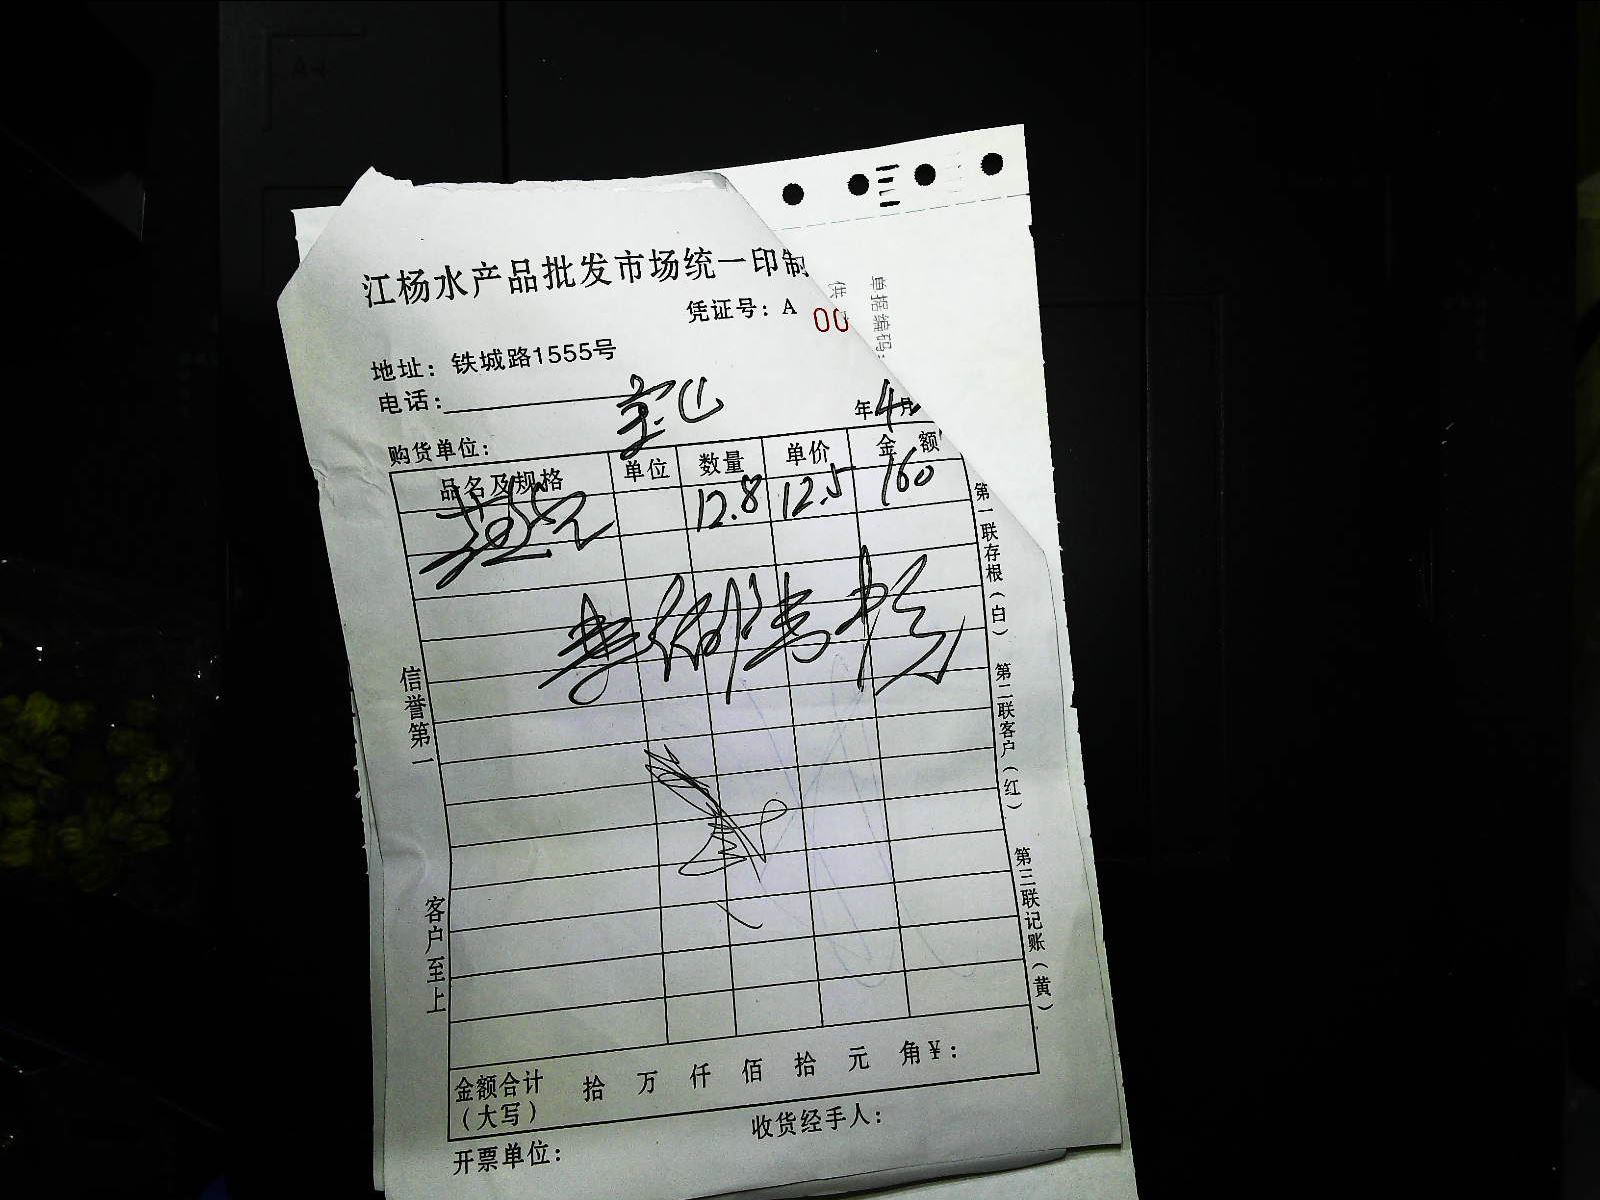 江杨水产品批发市场统一印制
凭证号：A 00
供
单据编码：
地址：铁城路1555号
电话：
年4月
购货单位：宝山
品名及规格 单位 数量 单价 金额
12.8 12.5 160
第一联存根（白） 第二联客户（红） 第三联记账（黄）
信誉第一 客户至上
金额合计（大写） 拾 万 仟 佰 拾 元 角 ¥：
开票单位： 收货经手人：